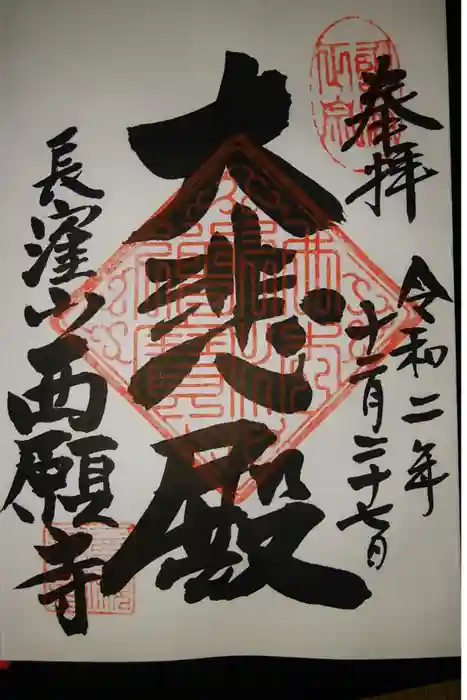 奉拝
令和二年
十一月二十七日
大悲殿
長窪山西願寺